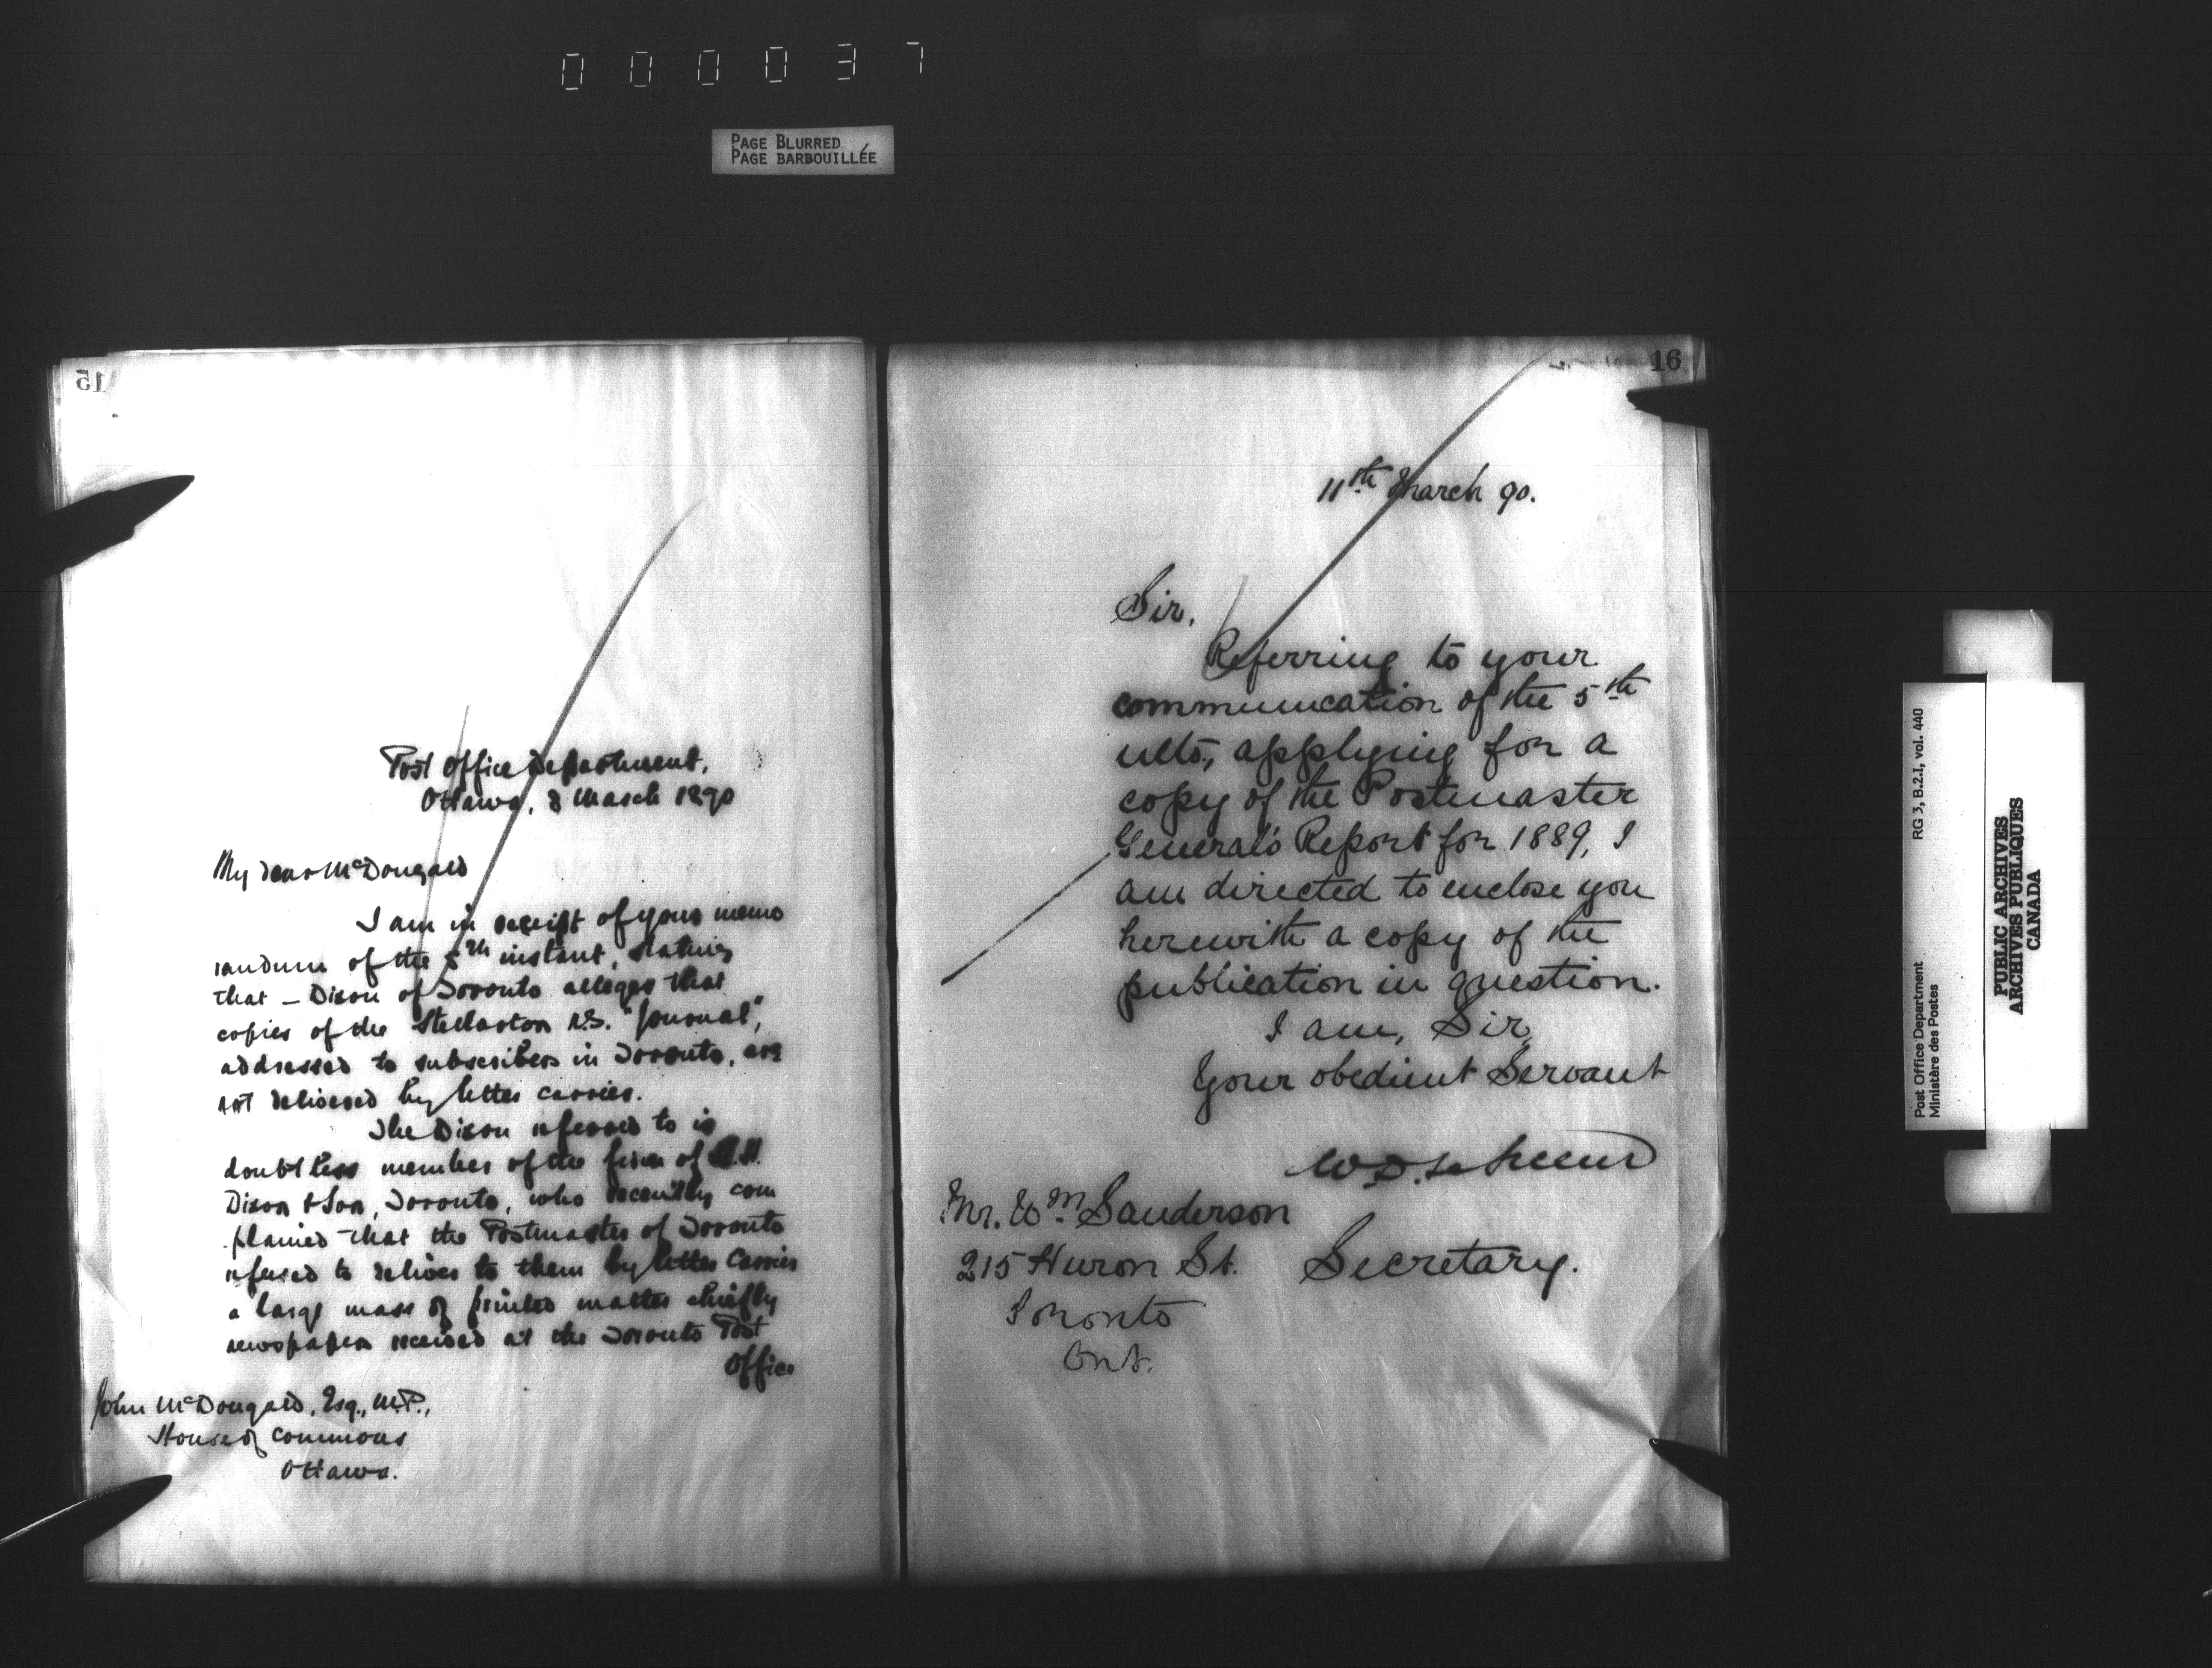 000037
PAGE BLURRED
PAGE BARBOUILLÉE
15
Post Office Department,
Ottawa, 8 March 1890
My dear McDougald
I am in receipt of your memo
randum of the 5th instant, stating
that – Dixon of Toronto alleges that
copies of the Stellarton N.S. "Journal",
addressed to subscribers in Toronto, are
not delivered by letter carrier.
The Dixon referred to is
doubtless member of the firm of H.
Dixon & Son, Toronto, who recently com
plained that the Postmaster of Toronto
refused to deliver to them by letter Carrier
a large mass of printed matter chiefly
newspapers received at the Toronto Post
Office
John McDougald, Esq., M.P.,
House of Commons
Ottawa.
16
11th March 90.
Sir,
Referring to your
communication of the 5th
ulto, applying for a
copy of the Postmaster
General's Report for 1889, I
am directed to enclose you
herewith a copy of the
publication in question.
I am, Sir,
Your obedient Servant
W.D. LeSueur
Mr. Wm Sanderson
215 Huron St.
Secretary.
Toronto
Ont.
Post Office Department
Ministère des Postes
RG 3, B.2.I, vol. 440
PUBLIC ARCHIVES
ARCHIVES PUBLIQUES
CANADA